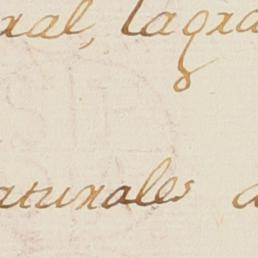 ral, la gra
aturales a